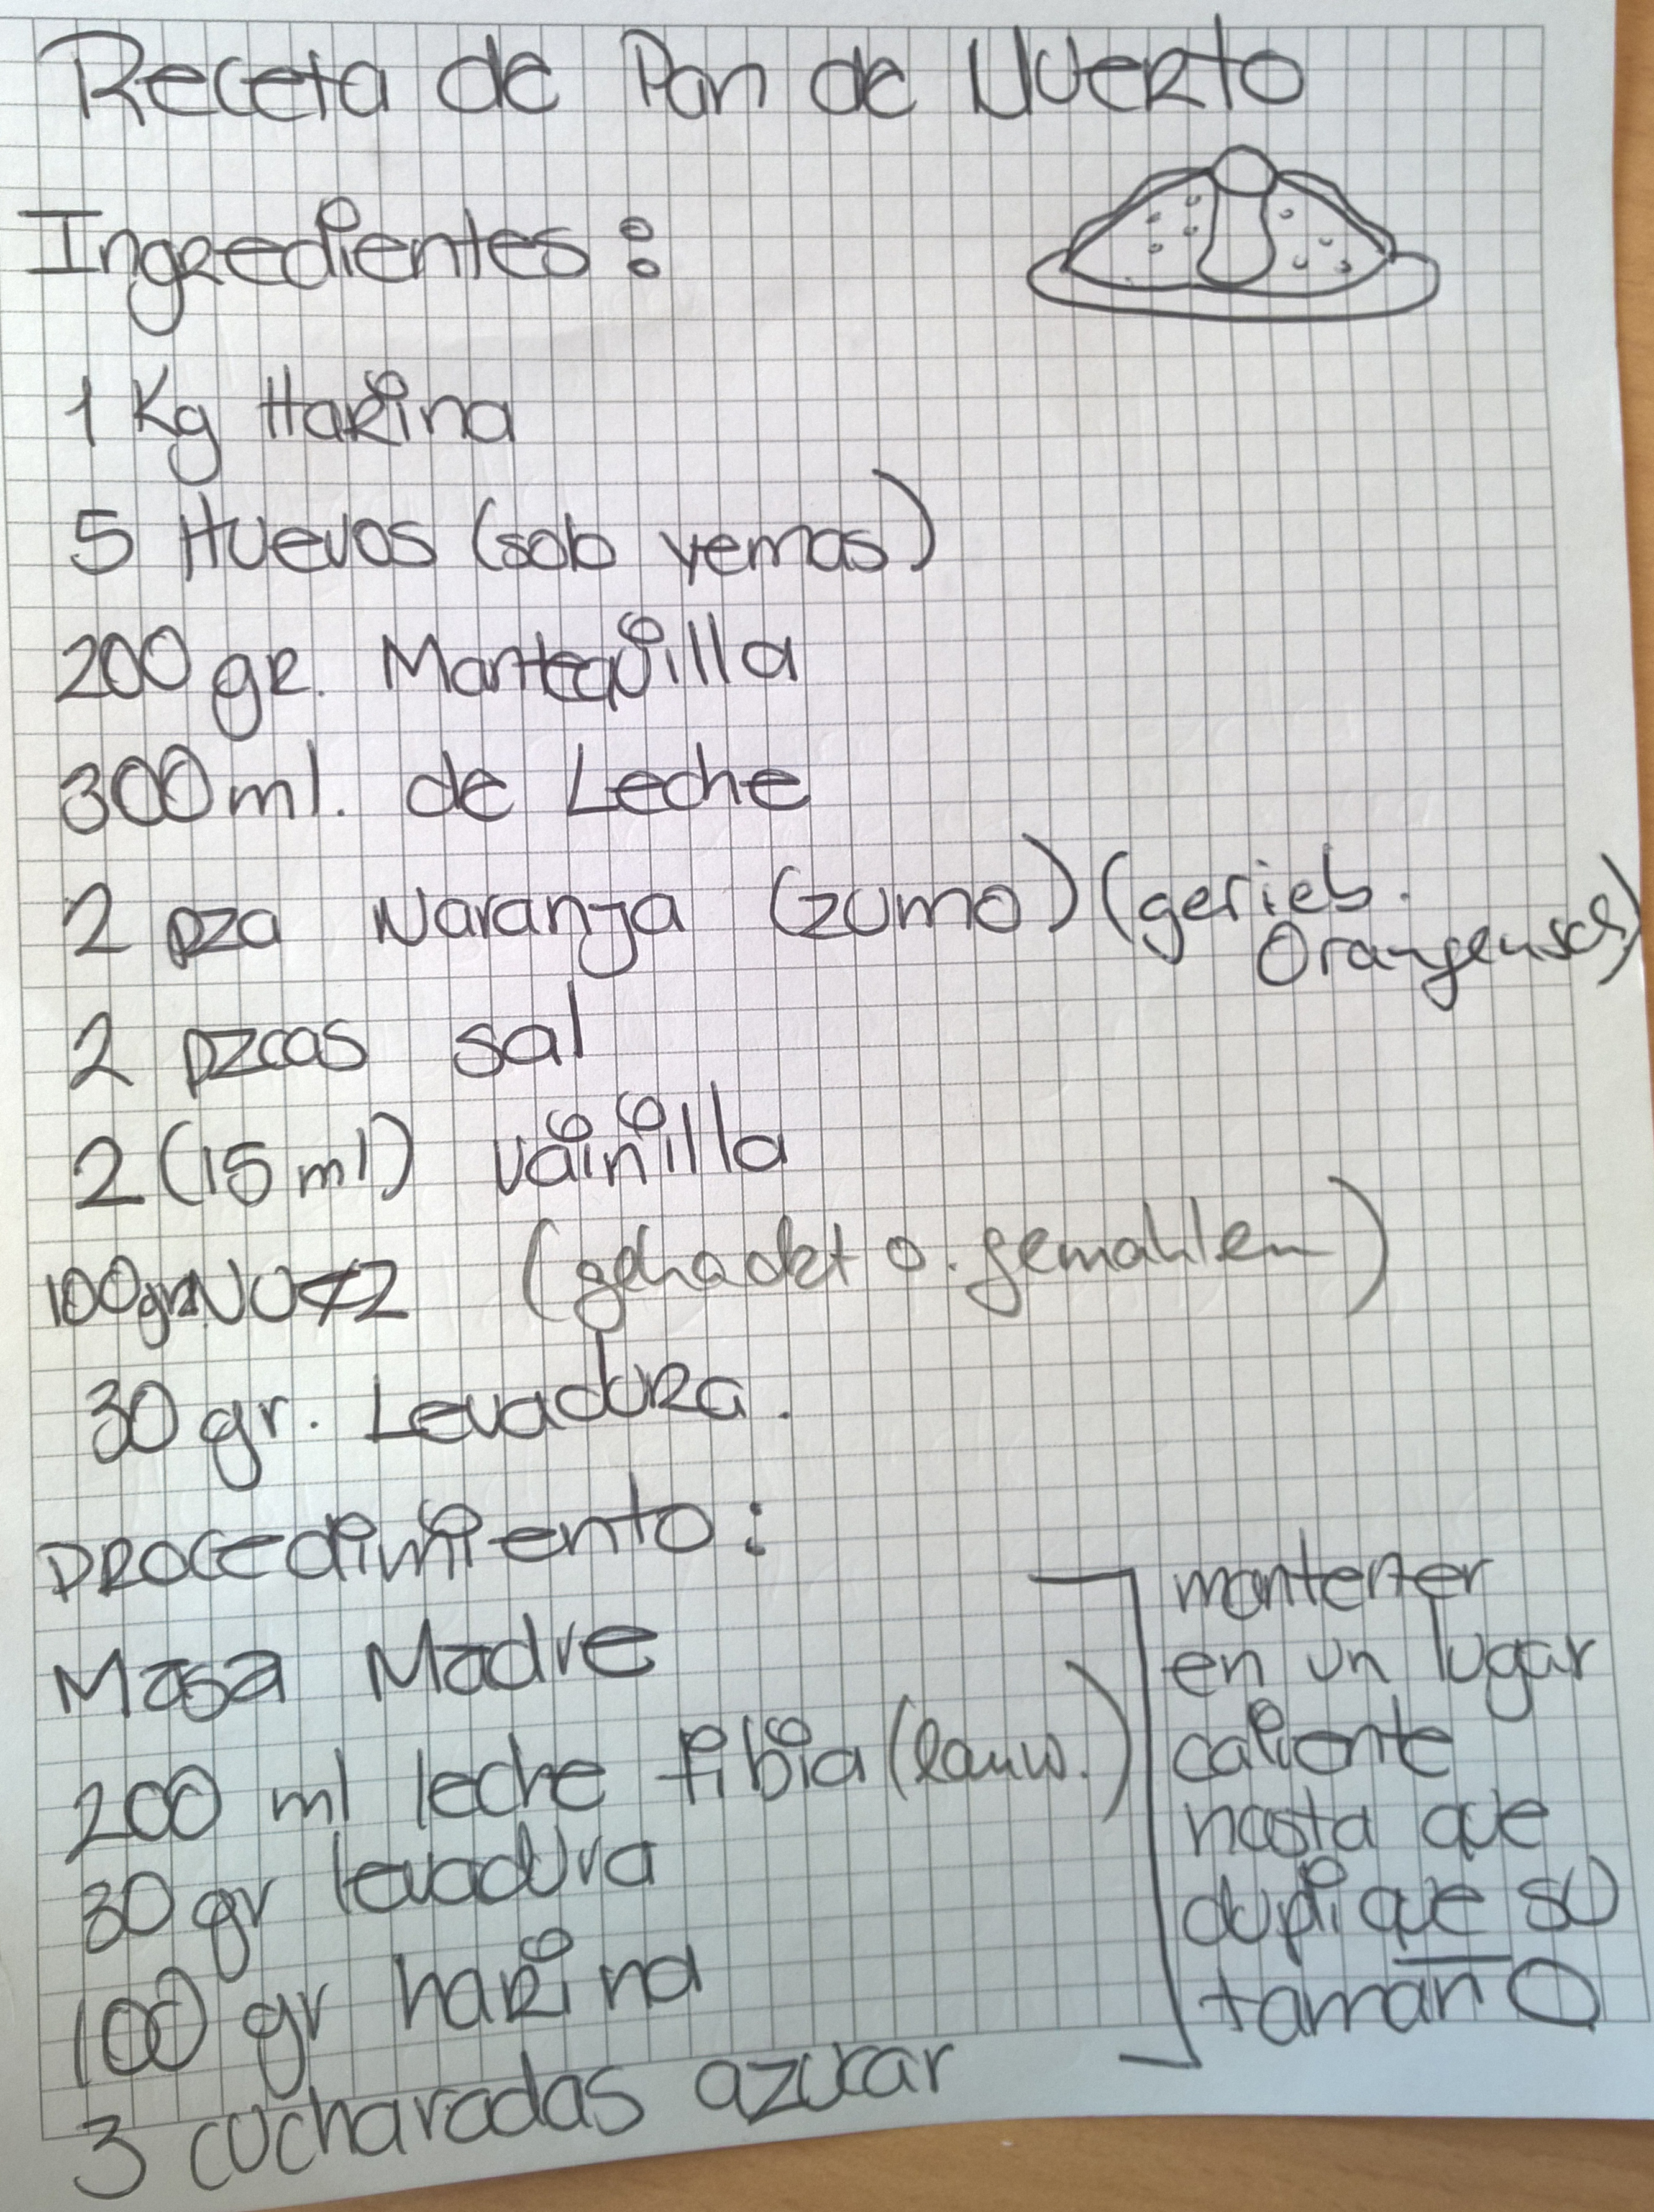 Receta de Pan de Muerto
Ingredientes:
1 Kg Harina
5 Huevos (solo yemas)
200 gr. Mantequilla
300 ml. de Leche
2 pza Naranja (zumo) (gerieb.
Orangensch)
2 pzcas sal
2 (15 ml) vainilla
100 gr. (gehackt o. gemahlen)
30 gr. Levadura.
Procedimiento:
Masa Madre
200 ml leche tibia (lauw.)
30 gr levadura
100 gr harina
3 cucharadas azucar
mantener
en un lugar
caliente
hasta que
duplique su
tamaño